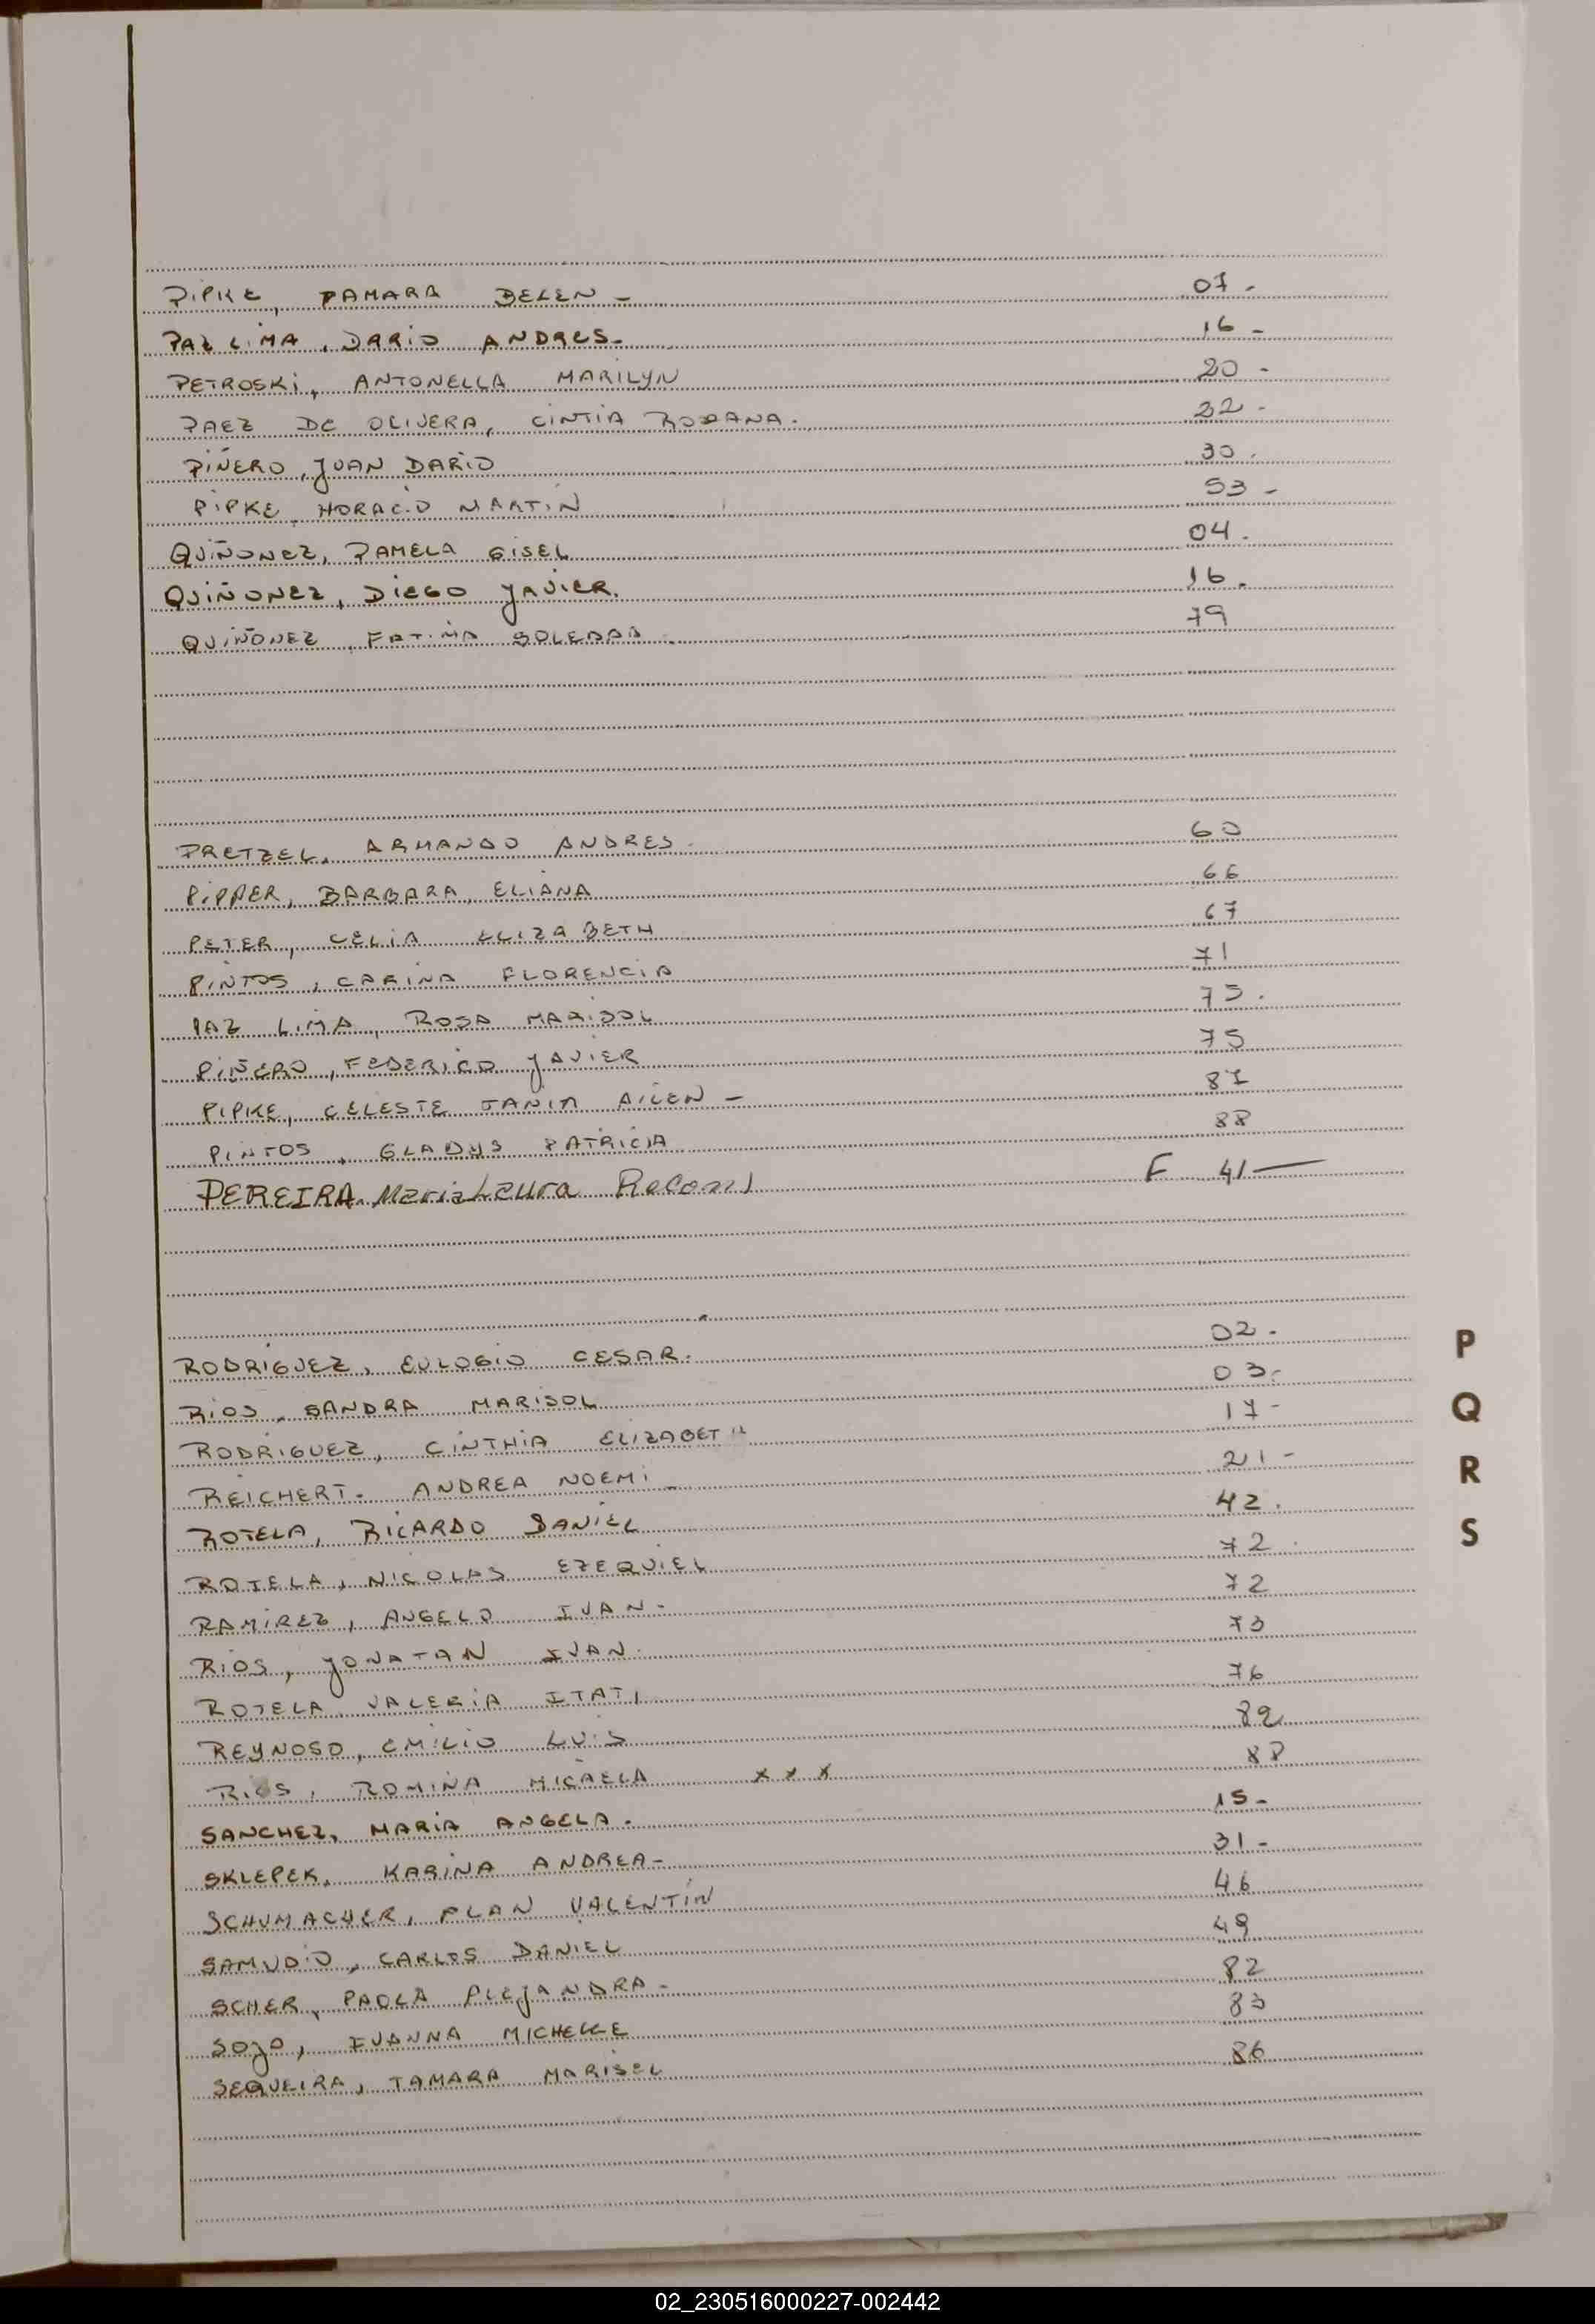 PIPKE, TAMARA BELEN - 07 -
PAZ LIMA, DARIO ANDRES - 16 -
PETROSKI, ANTONELLA MARILYN 20 -
PAEZ DE OLIVERA, CINTIA ROXANA. 22 -
PIÑERO, JUAN DARIO 30 .
PIPKE, HORACIO MARTIN 53 -
QUIÑONEZ, PAMELA GISEL 04 .
QUIÑONEZ, DIEGO JAVIER. 16 .
QUIÑONEZ, FATIMA SOLEDAD . 79
PRETZEL, ARMANDO ANDRES - 60
PIPPER, BARBARA, ELIANA 66
PETER, CELIA ELIZABETH 67
PINTOS, CARINA FLORENCIA 71
PAZ LIMA, ROSA MARISOL 75 .
PIÑERO, FEDERICO JAVIER 75
PIPKE, CELESTE TANIA AILEN - 87
PINTOS, GLADYS PATRICIA 88
PEREIRA Maria Laura F 41 —
RODRIGUEZ, EULOGIO CESAR. 02 -
RIOS, SANDRA MARISOL 03 -
RODRIGUEZ, CINTHIA ELIZABETH 17 -
REICHERT. ANDREA NOEMI - 21 -
ROTELA, RICARDO DANIEL 42 .
ROTELA, NICOLAS EZEQUIEL 72 .
RAMIREZ, ANGELO IVAN - 72
RIOS, JONATAN IVAN. 73
ROTELA, VALERIA ITATI 76
REYNOSO, EMILIO LUIS 82
RIOS, ROMINA MICAELA x x x 88
SANCHEZ, MARIA ANGELA . 15 -
SKLEPEK, KARINA ANDREA - 31 -
SCHUMACHER, ALAN VALENTIN 46
SAMUDIO, CARLOS DANIEL 49
SCHER, PAOLA ALEJANDRA - 82
SOJO, IVANNA MICHELLE 83
SEQUEIRA, TAMARA MARISEL 86
P
Q
R
S
02_230516000227-002442